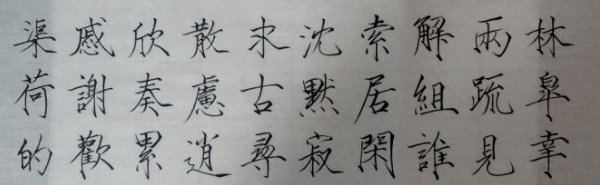 林皐幸
兩疏見
解組誰
索居閑
沈默寂
求古尋
散慮逍
欣奏累
慼謝歡
渠荷的